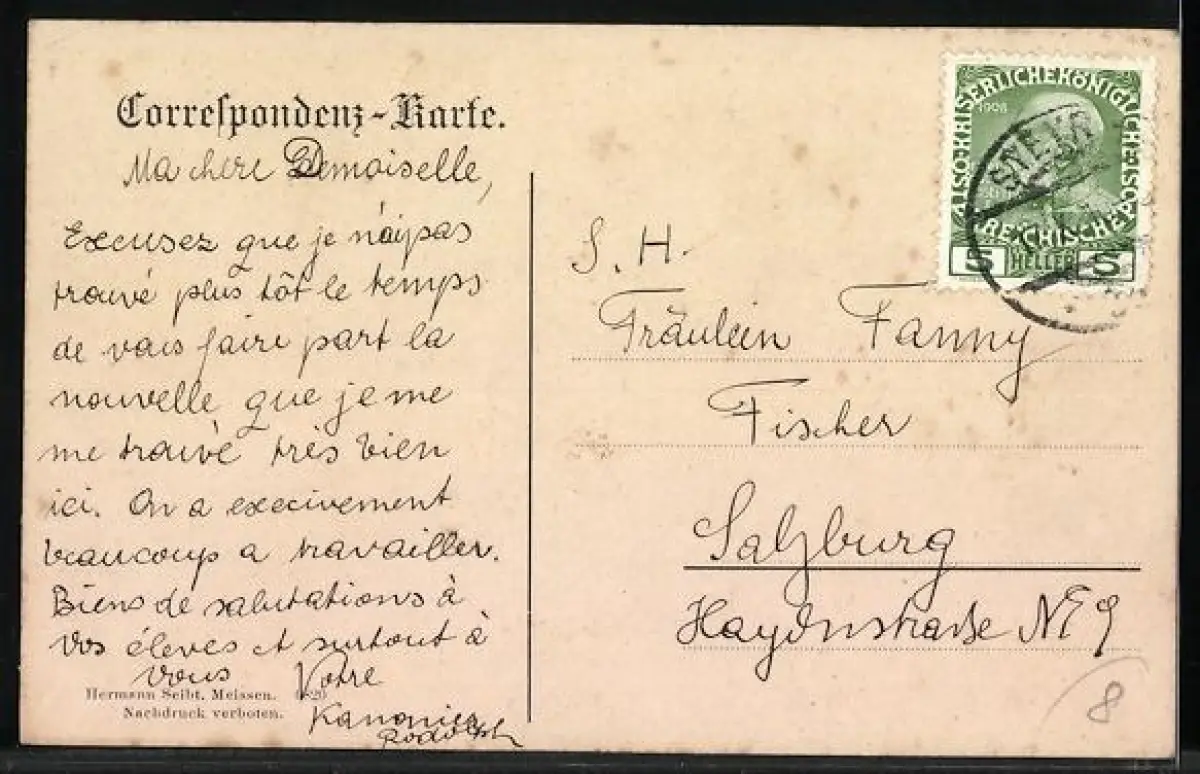 Correspondenz-Karte.
Ma chère Demoiselle,
Excusez que je n'aipas
trouvé plus tôt le temps
de vous faire part la
nouvelle que je me
me trouve très bien
ici. On a execivement
beaucoup a travailler.
Biens de salutations à
vos élèves et surtout à
vous Votre
Kanonier
Rodolph
Hermann Seibt, Meissen.
Nachdruck verboten.
1908
5 HELLER 5
S. H.
Fräulein Fanny
Fischer
Salzburg
Haydnstraße No 9
8